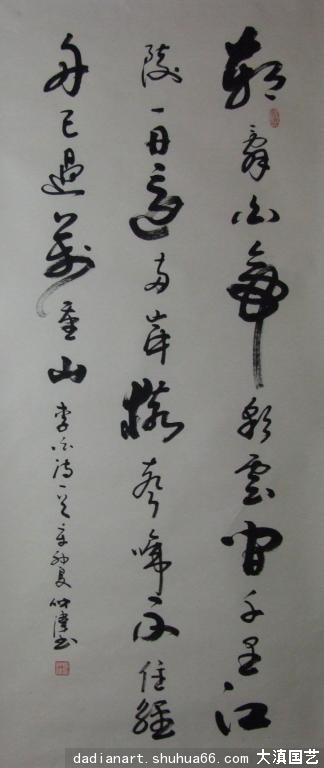 朝辭白帝彩雲間千里江
陵一日還兩岸猿聲啼不住輕
舟已過萬重山 李白詩一首 辛卯夏 書
dadianart.shuhua66.com 大滇国艺